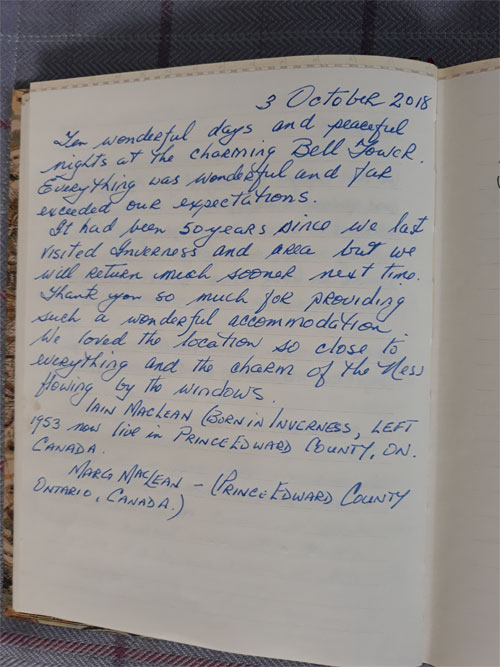 3 October 2018
Ten wonderful days and peaceful
nights at the charming Bell Tower.
Everything was wonderful and far
exceeded our expectations.
It had been 50 years since we last
visited Inverness and area but we
will return much sooner next time.
Thank you so much for providing
such a wonderful accommodation.
We loved the location so close to
everything and the charm of the Ness
flowing by the windows.
Iain MacLean (Born in Inverness, left
1953 now live in Prince Edward County, ON.
Canada.
Marg MacLean - (Prince Edward County
Ontario, Canada.)